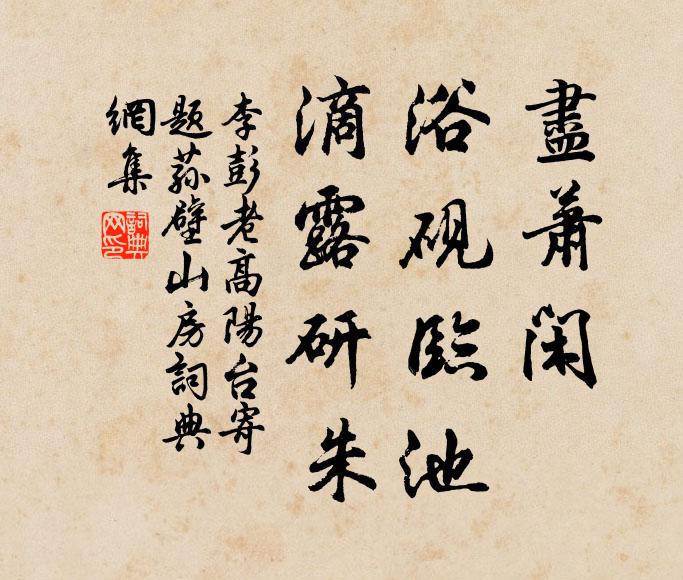 盡蕭閑
浴硯臨池
滴露研朱
李彭老高陽台寄
題蓀壁山房詞典
網集
詞典網印